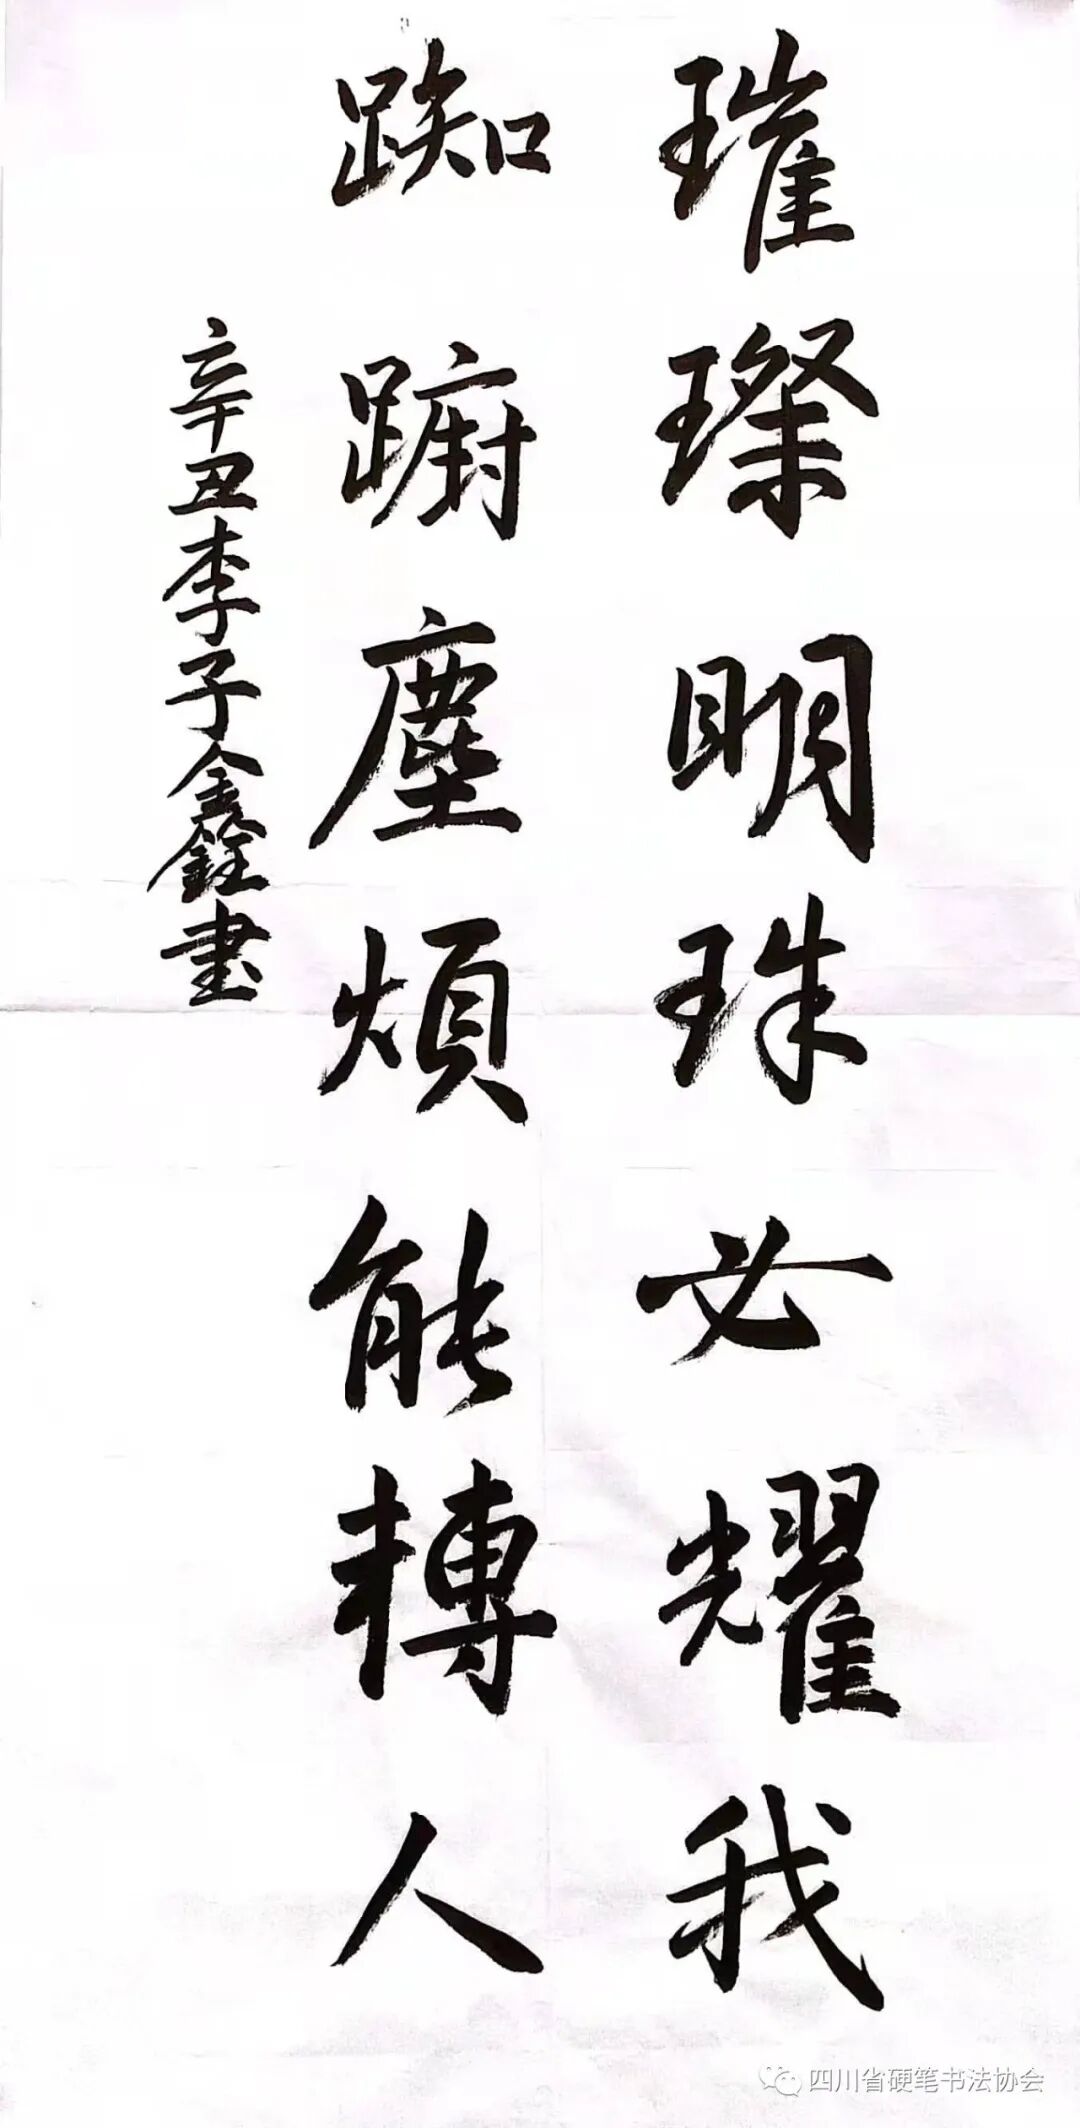 璀璨明珠必耀我
踟蹰塵煩能轉人
辛丑李子鑫鈺書
四川省硬笔书法协会